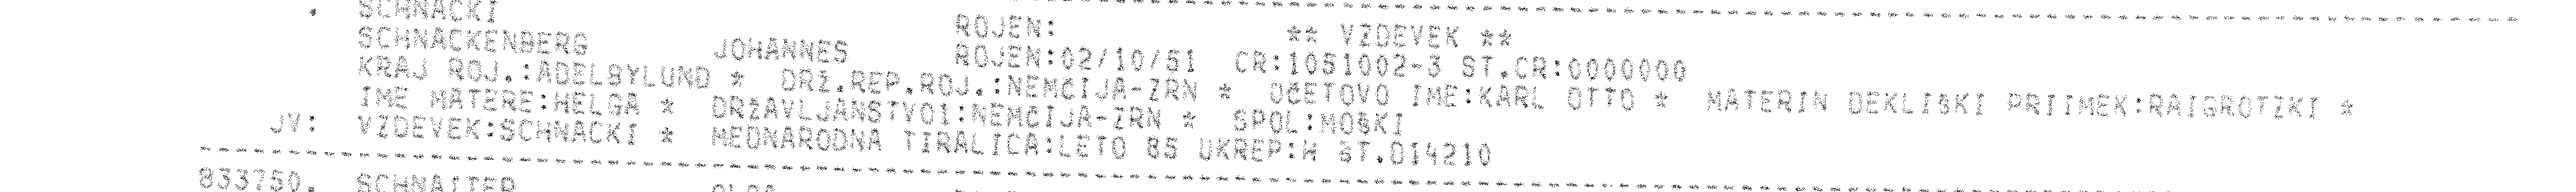 . SCHNACKI ROJEN: ** VZDEVEK **
SCHNACKENBERG JOHANNES ROJEN:02/10/51 CR:1051002-3 ST.CR:0000000
KRAJ ROJ.:ADELBYLUND * DRŽ.REP.ROJ.:NEMČIJA-ZRN * OČETOVO IME:KARL OTTO * MATERIN DEKLIŠKI PRIIMEK:RAIGROTZKI *
IME MATERE:HELGA * DRŽAVLJANSTVO1:NEMČIJA-ZRN * SPOL:MOŠKI
JV: VZDEVEK:SCHNACKI * MEDNARODNA TIRALICA:LETO 85 UKREP:H ŠT.D14210
833750. SCHNAITER OLGA